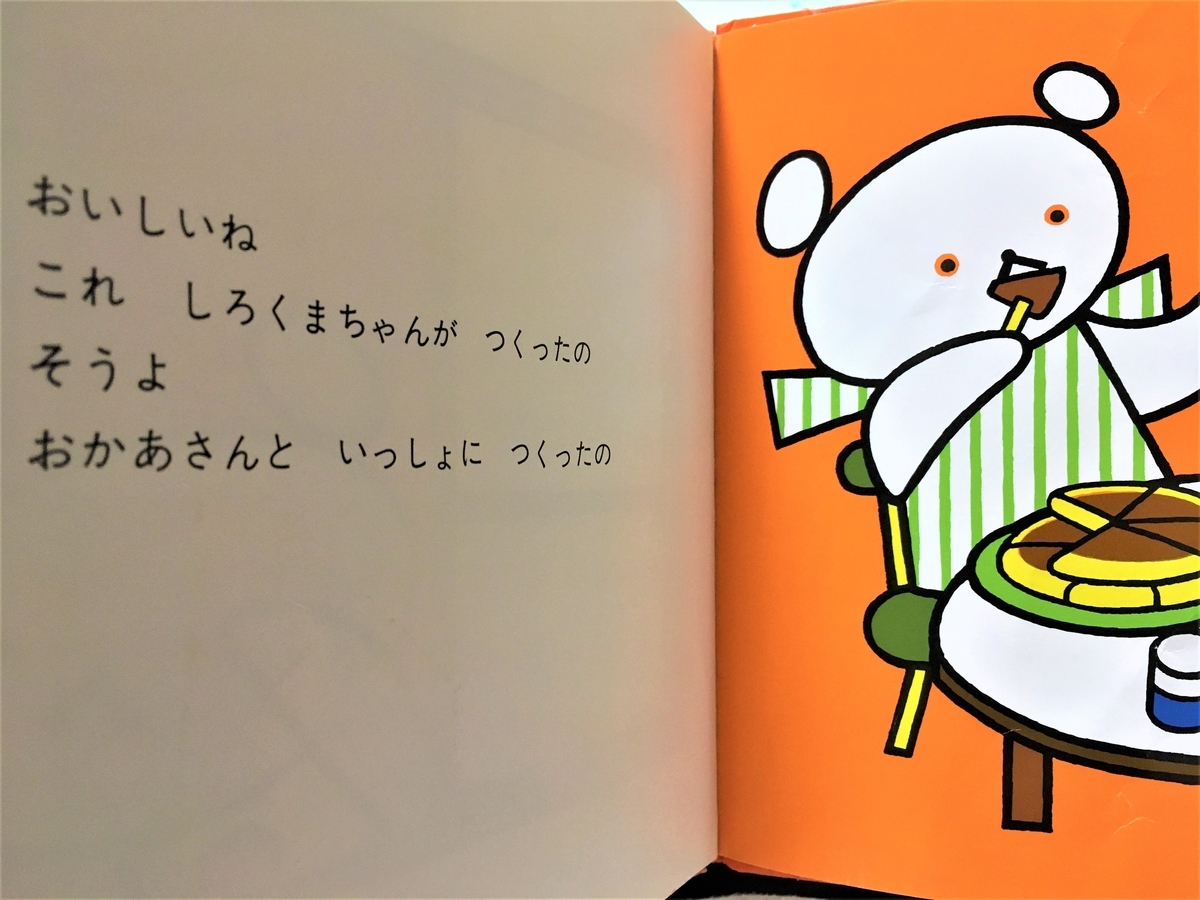 おいしいね
これ　しろくまちゃんが　つくったの
そうよ
おかあさんと　いっしょに　つくったの